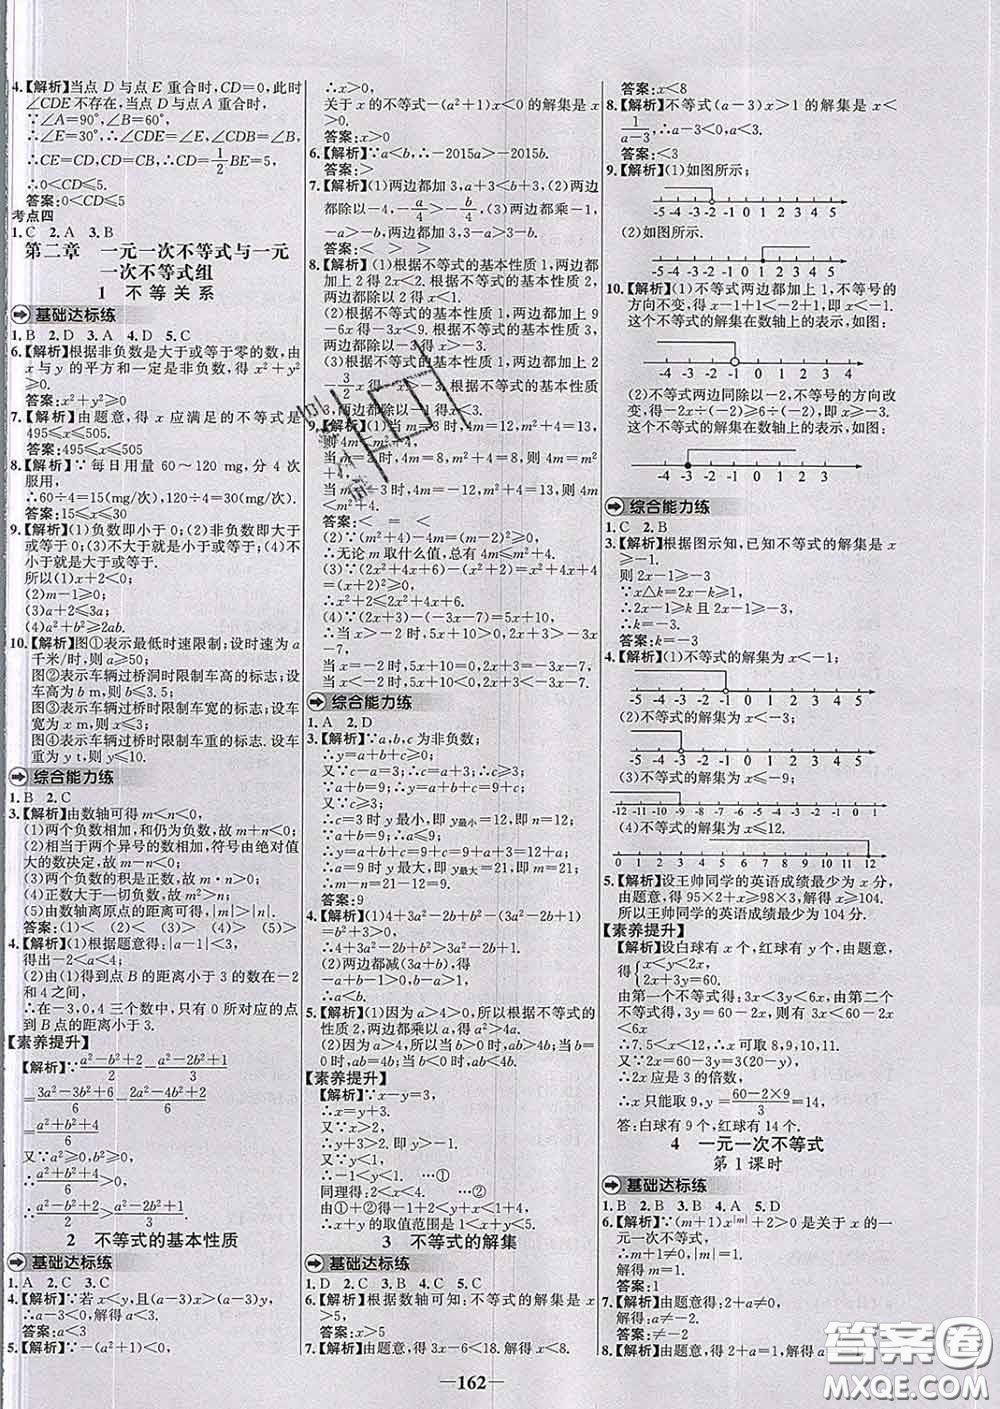 4.【解析】当点 D 与点 E 重合时,CD=0,此时
∠CDE 不存在,当点 D 与点 A 重合时,
∵∠A=90°,∠B=60°,
∴∠E=30°,∴∠CDE=∠E,∠CDB=∠B,
∴CE=CD,CD=CB,∴CD=1/2BE=5,
∴0<CD⩽5.
答案:0<CD⩽5
考点四
1.C 2.A 3.B
第二章 一元一次不等式与一元
一次不等式组
1 不等关系
基础达标练
1.B 2.D 3.A 4.D 5.C
6.【解析】根据非负数是大于或等于零的数,由
x 与 y 的平方和一定是非负数,得 x²+y²
⩾0.
答案:x²+y²⩾0
7.【解析】由题意,得 x 应满足的不等式是
495⩽x⩽505.
答案:495⩽x⩽505
8.【解析】∵每日用量 60～120 mg,分 4 次
服用,
∴60÷4=15(mg/次),120÷4=30(mg/次).
答案:15⩽x⩽30
9.【解析】(1)负数即小于 0;(2)非负数即大于
或等于 0;(3)不大于就是小于或等于;(4)不
小于就是大于或等于.
所以(1)x+2<0;
(2)m-1⩾0;
(3)a+2⩽3a;
(4)a²+b²⩾2ab.
10.【解析】图①表示最低时速限制;设时速为 a
千米/时,则 a⩾50;
图②表示车辆过桥洞时限制车高的标志;设
车高为 b m,则 b⩽3.5;
图③表示车辆过桥时限制车宽的标志;设车
宽为 x m,则 x⩽3;
图④表示车辆过桥时限制车重的标志.设车
重为 y t,则 y⩽10.
综合能力练
1.B 2.C
3.【解析】由数轴可得 m<n<0;
(1)两个负数相加,和仍为负数,故 m+n<0;
(2)相当于两个异号的数相加,符号由绝对值
大的数决定,故 m-n<0;
(3)两个负数的积是正数,故 m·n>0;
(4)正数大于一切负数,故 m<n;
(5)数轴离原点的距离可得,|m|>|n|.
答案:(1)< (2)< (3)> (4)> (5)>
4.【解析】(1)根据题意得:|a-1|<3,
得出-2<a<4;
(2)由(1)得到点 B 的距离小于 3 的数在-2
和 4 之间,
∴在-3,0,4 三个数中,只有 0 所对应的点
到 B 点的距离小于 3.
【素养提升】
【解析】∵(a²-b²+2)/2-(a²-2b²+1)/3
=(3a²-3b²+6)/6-(2a²-4b²+2)/6
=(a²+b²+4)/6
又∵a²⩾0,b²⩾0,
∴(a²+b²+4)/6>0,
∴(a²-b²+2)/2>(a²-2b²+1)/3.
2 不等式的基本性质
基础达标练
1.A 2.C 3.C
4.【解析】∵若 x<y,且(a-3)x>(a-3)y,
∴a-3<0,解得 a<3.
答案:a<3
5.【解析】∵-(a²+1)<0,
∴x>0,
关于 x 的不等式-(a²+1)x<0 的解集是 x
>0.
答案:x>0
6.【解析】∵a<b,∴-2015a>-2015b.
答案:>
7.【解析】(1)两边都加 3,a+3<b+3,(2)两
边都除以-4,-a/4>-b/4,(3)两边都乘-1,
-a>-b,两边都加 5,5-a>5-b.
答案:< > < >
8.【解析】(1)根据不等式的基本性质 1,两边都
加上 2 得 2x<2.根据不等式的基本性质 2,
两边都除以 2 得 x<1.
(2)根据不等式的基本性质 1,两边都加上 9
-6x 得-3x<9.根据不等式的基本性质 3,两
边都除以-3 得 x>-3.
(3)根据不等式的基本性质 1,两边都加上
-3/2x 得-x>-3.根据不等式的基本性质
3,两边都除以-1 得 x<3.
9.【解析】(1)当 m=3 时,4m=12,m²+4=13,
则 4m<m²+4,
当 m=2 时,4m=8,m²+4=8,则 4m=m²
+4,
当 m=-3 时,4m=-12,m²+4=13,则
4m<m²+4.
答案:< = <
(2)∵(m²+4)-4m=(m-2)²⩾0,
∴无论 m 取什么值,总有 4m⩽m²+4;
(3)∵(2x²+4x+6)-(x²+2)=x²+4x+4
=(x+2)²⩾0,
∴x²+2⩽2x²+4x+6,
(4)∵(2x+3)-(-3x-7)=5x+10,
∴当 x>-2 时,5x+10>0,2x+3>-3x
-7,
当 x=-2 时,5x+10=0,2x+3=-3x-7,
当 x<-2 时,5x+10<0,2x+3<-3x-7.
综合能力练
1.A 2.D
3.【解析】∵a,b,c 为非负数;
∴y=a+b+c⩾0;
又∵c-a=3;∴c=a+3;∴c⩾3;
∵a+b=9;
∴y=a+b+c=9+c;
又∵c⩾3;
∴c=3 时 y 最小,即 y最小=12,即 n=12;
∵a+b=9;∴a⩽9;
∴y=a+b+c=9+c=9+a+3=12+a;
∴a=9 时 y 最大,即 y最大=21,即 m=21;
∴m-n=21-12=9.
答案:9
4.【解析】(1)4+3a²-2b+b²-(3a²-2b+1)=
b²+3>0,
∴4+3a²-2b+b²>3a²-2b+1;
(2)两边都减(3a+2b),得
-a+b-1>0,-a+b>1,
∴a<b.
5.【解析】(1)因为 a>4>0,所以根据不等式的
性质 2,两边都乘以 a,得 a²>4a.
(2)因为 a>4,所以当 b>0 时,ab>4b;当 b
=0 时,ab=4b;当 b<0 时,ab<4b.
【素养提升】
【解析】∵x-y=3,
∴x=y+3.
又∵x>2,
∴y+3>2,即 y>-1.
又∵y<1,
∴-1<y<1. ……①
同理得:2<x<4. ……②
由①+②得-1+2<y+x<1+4,
∴x+y 的取值范围是 1<x+y<5.
3 不等式的解集
基础达标练
1.D 2.C 3.C 4.A 5.C
6.【解析】根据数轴可知:不等式的解集是 x
>5,
答案:x>5
7.【解析】由题意,得 3x-6<18.解得 x<8.
答案:x<8
8.【解析】不等式(a-3)x>1 的解集是 x<
1/(a-3),∴a-3<0,a<3.
答案:<3
9.【解析】(1)如图所示,
-5 -4 -3 -2 -1 0 1 2 3 4 5
(2)如图所示.
-5 -4 -3 -2 -1 0 1 2 3 4 5
10.【解析】(1)不等式两边加 1,不等号的
方向不变,得 x-1+1<-2+1,即 x<-1.
这个不等式的解集在数轴上的表示,如图:
-4 -3 -2 -1 0 1 2 3 4
(2)不等式两边同除以-2,不等号的方向改
变,得-2x÷(-2)⩾6÷(-2),即 x⩾-3.
这个不等式的解集在数轴上的表示,如图:
-4 -3 -2 -1 0 1 2 3 4
综合能力练
1.C 2.B
3.【解析】根据图示知,已知不等式的解集是 x
⩾-1.
则 2x-1⩾-3
∵x△k=2x-k⩾1,
∴2x-1⩾k 且 2x-1⩾-3,
∴k=-3.
答案:k=-3
4.【解析】(1)不等式的解集为 x<-1;
-5 -4 -3 -2 -1 0 1 2 3 4 5
(2)不等式的解集为 x<-3;
-5 -4 -3 -2 -1 0 1 2 3 4 5
(3)不等式的解集为 x⩽-9;
-12 -11 -10 -9 -8 -7 -6 -5 -4 -3 -2 -1 0
(4)不等式的解集为 x⩽12.
0 1 2 3 4 5 6 7 8 9 10 11 12
5.【解析】设王帅同学的英语成绩最少为 x 分,
由题意,得 95×2+x=98×3,解得 x=104.
所以王帅同学的英语成绩最少为 104 分.
【素养提升】
【解析】设白球有 x 个,红球有 y 个,由题意,
得{x<y<2x,
2x+3y=60.
由第一个不等式得:3x<3y<6x,由第二个不
等式得,3y=60-2x,则有 3x<60-2x
<6x
∴7.5<x<12,∴x 可取 8,9,10,11.
又∵2x=60-3y=3(20-y),
∴2x 应是 3 的倍数,
∴x 只能取 9,y=(60-2×9)/3=14,
答:白球有 9 个,红球有 14 个.
4 一元一次不等式
第 1 课时
基础达标练
1.B 2.B 3.B 4.A 5.D
6.【解析】∵(m+1)x|m|+2>0 是关于 x 的一
元一次不等式,
∴m+1≠0,|m|=1.
解得 m=1.
答案:1
7.【解析】由题意得:2+a≠0,解得:a≠-2.
答案:≠-2
8.【解析】由题意,得 2a+1=1,解得
答案圈
MXQE.COM
—162—